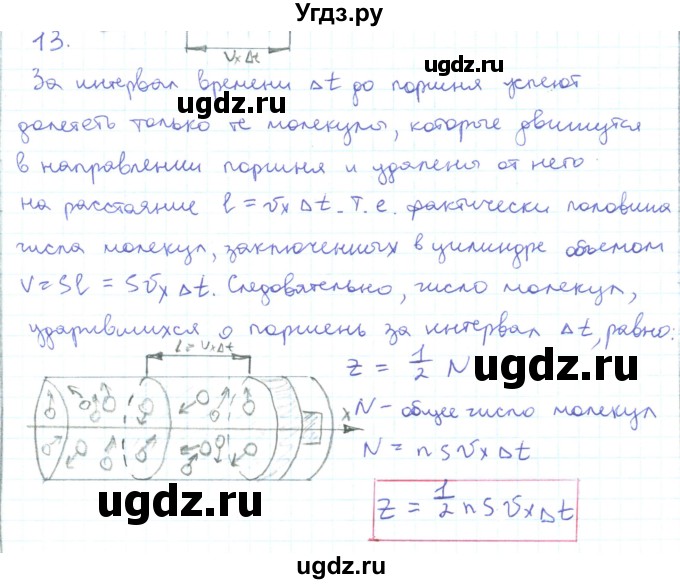 Угдз.ру
13.
Vx Δt
За интервал времени Δt до поршня успеют
долететь только те молекулы, которые движутся
в направлении поршня и удалены от него
на расстояние l = υx Δt. Т.е. фактически половина
числа молекул, заключённых в цилиндре объемом
V = Sl = S υx Δt. Следовательно, число молекул,
ударившихся о поршень за интервал Δt, равно:
l = υx Δt
z = 1/2 N
x
N - общее число молекул
N = n S υx Δt
z = 1/2 n S υx Δt
ugdz.ru
ugdz.ru
ugdz.ru
ugdz.ru
ugdz.ru
ugdz.ru
ugdz.ru